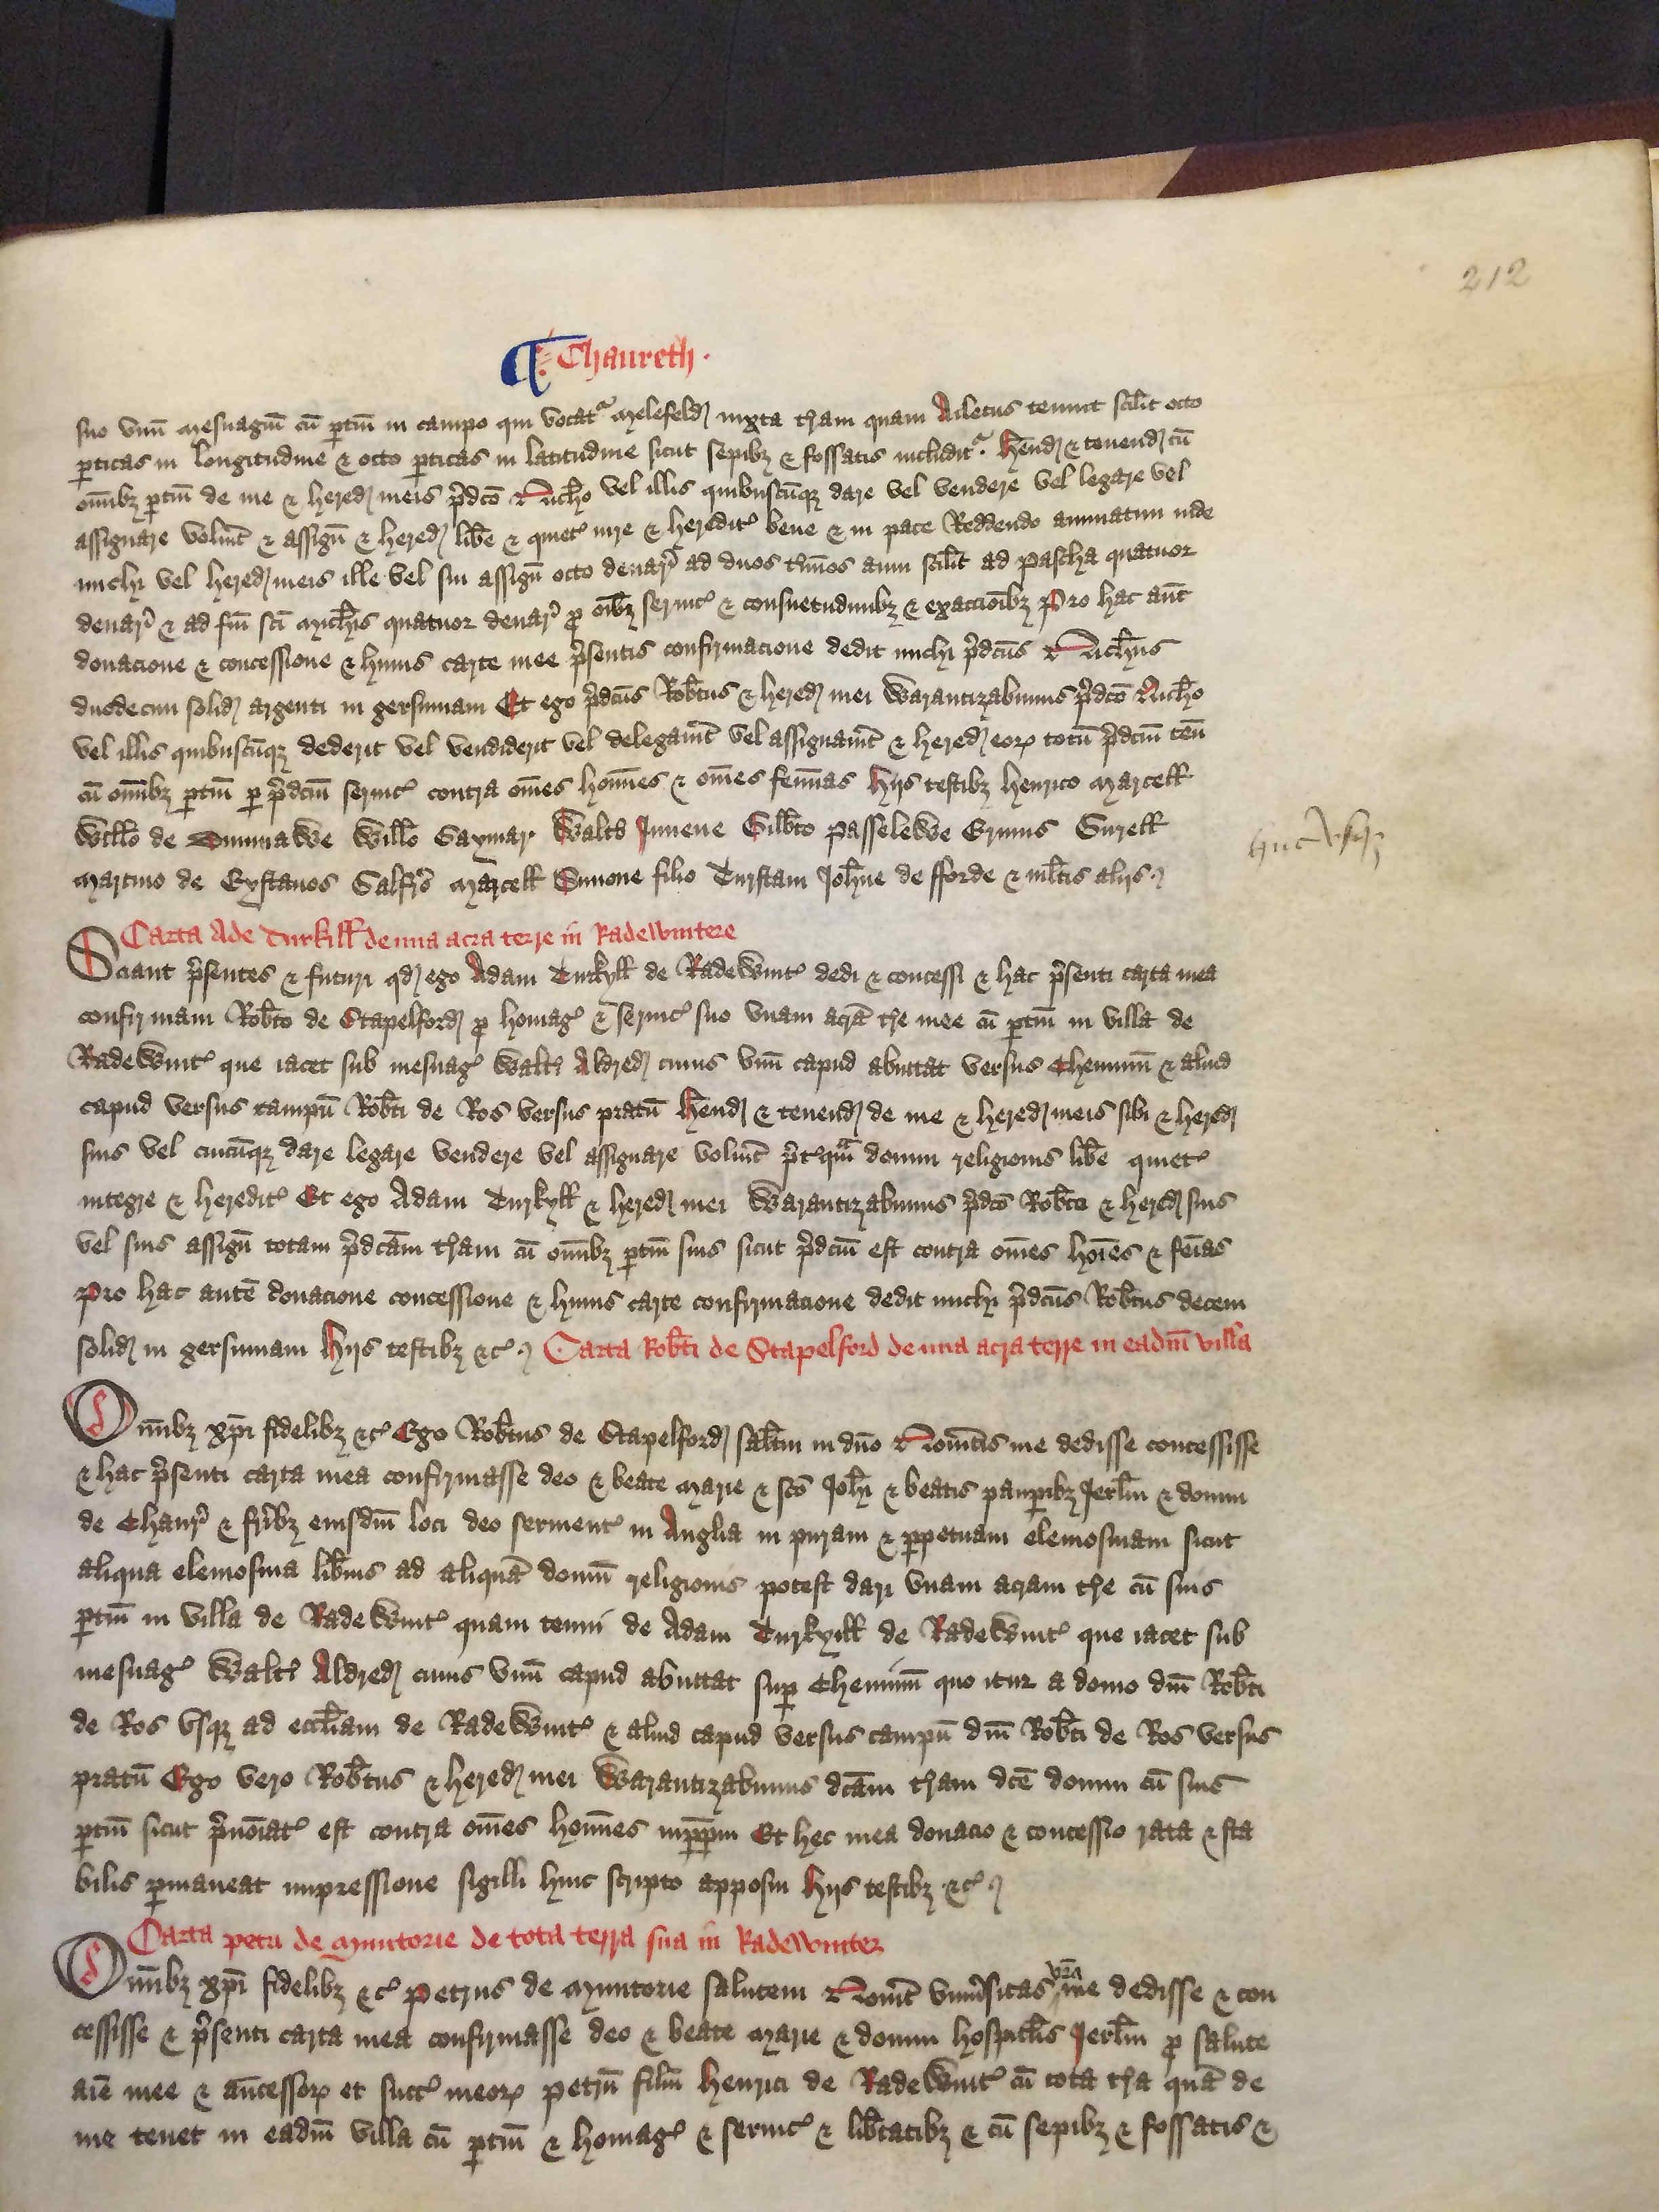 212
Chaureth.
suo vnū mesuagiū cū ꝑtiñ in campo qui vocatᵃ Melefeldꝭ iuxta t̃ram quam Ailetus tenuit scilt octo
ꝑticas in longitudine ⁊ octo ꝑticas in latitudine sicut sepibꝫ ⁊ fossatis includitᵃ. Hend̃ ⁊ tenendꝭ cū
om̄ibꝫ ꝑtiñ de me ⁊ heredꝭ meis p̃dco Richo vel illis quibuscūqꝫ dare vel vendere vel legare vel
assignare voluit̃ ⁊ assigñ ⁊ heredꝭ libe ⁊ quiet̃ iure ⁊ heredit̃ bene ⁊ in pace Reddendo annuatim inde
michi vel heredꝭ meis ille vel sui assigñ octo denar̃ ad duos t̃mōs anni scilt ad pascha quatuor
denar̃ ⁊ ad fm̄ sci Michis quatuor denar̃ ꝓ oībꝫ seruic̃ ⁊ consuetudinibꝫ ⁊ exaccioībꝫ Pro hac aut̃
donacione ⁊ concessione ⁊ huius carte mee p̃sentis confirmacione dedit michi p̃dcus Richus
duodecim solidꝭ argenti in gersumam Et ego p̃dcus Robtus ⁊ heredꝭ mei Warantizabimus p̃dco Richo
vel illis quibuscūqꝫ dederit vel vendiderit vel delegauit̃ vel assignauit̃ ⁊ heredꝭ eoꝝ totū p̃dcm̄ teñ
cū om̄ibꝫ ꝑtiñ ꝑ p̃dcm̄ seruic̃ contra om̄es hom̄es ⁊ om̄es fem̄as Hijs testibꝫ Henrico Marcell
Willo de Dunmawe Willo Saymar Walt̃o Juuene Gilbto Passelewe Ernius Surell
huc vsqꝫ
Martino de Eystanes Galfr̃o Marcell Simone filio Turstani Johne de fforde ⁊ m̃ltis alijs
Carta Ade Turkill de vna acra terre in Radewintere
Sciant p̃sentes ⁊ futuri qdꝭ ego Adam Turkyll de Radewint̃ dedi ⁊ concessi ⁊ hac p̃senti carta mea
confirmaui Robto de Stapelfordꝭ ꝓ homag̃ ⁊ seruic̃ suo vnam acrā t̃re mee cū ꝑtiñ in villa de
Radewint̃ que iacet sub mesuag̃ Walt̃i Aldredꝭ cuius vnū capud abuttat versus cheminū ⁊ aliud
capud versus campū Robti de Ros versus pratū Hend̃ ⁊ tenendꝭ de me ⁊ heredꝭ meis sibi ⁊ heredꝭ
suis vel cuicūqꝫ dare legare vendere vel assignare voluit̃ p̃t̃qᵃm domui religionis libe quiet̃
integre ⁊ heredit̃ Et ego Adam Turkyll ⁊ heredꝭ mei Warantizabimus p̃dco Robto ⁊ heredꝭ suis
vel suis assigñ totam p̃dcam t̃ram cū om̄ibꝫ ꝑtiñ suis sicut p̃dcm̄ est contra om̄es hoīes ⁊ feīas
Pro hac autē donacione concessione ⁊ huius carte confirmacione dedit michi p̃dcus Robtus decem
solidꝭ in gersumam Hijs testibꝫ ⁊c̃ Carta Robti de Stapelford de vna acra terre in eadm̄ villa
Om̄ibꝫ xp̄i fidelibꝫ ⁊c̃ Ego Robtus de Stapelfordꝭ saltm in dn̄o Nouitis me dedisse concessisse
⁊ hac p̃senti carta mea confirmasse deo ⁊ beate Marie ⁊ sco Johi ⁊ beatis pauꝑibꝫ Jerlm ⁊ domui
de Chaur̃ ⁊ fr̃ibꝫ eiusdm̄ loci deo seruient̃ in Anglia in puram ⁊ ꝑpetuam elemosinam sicut
aliqua elemosina libius ad aliquā domū religionis potest dari vnam acram t̃re cū suis
ꝑtiñ in villa de Radewint̃ quam tenui de Adam Turkyll de Radewint̃ que iacet sub
mesuag̃ Walt̃i Aldredꝭ cuius vnū capud abuttat suꝑ cheminū quo itur a domo dn̄i Robti
de Ros vsqꝫ ad eccliam de Radewint̃ ⁊ aliud capud versus campū dn̄i Robti de Ros versus
pratū Ego vero Robtus ⁊ heredꝭ mei Warantizabimus dcam t̃ram dce domui cū suis
ꝑtiñ sicut p̃noīat̃ est contra om̄es hom̄es inꝑpm Et hec mea donacio ⁊ concessio rata ⁊ sta
bilis ꝑmaneat impressione sigilli huic scripto apposui Hijs testibꝫ ⁊c̃
Carta petri de Muntorie de tota terra sua in Radewinter
Om̄ibꝫ xp̄i fidelibꝫ ⁊c̃ Petrus de Muntorie salutem Nouit̃ vniũsitas vr̃a me dedisse ⁊ con
cessisse ⁊ p̃senti carta mea confirmasse deo ⁊ beate Marie ⁊ domui hospitlis Jerlm ꝓ salute
aīe mee ⁊ an̄cessoꝝ et succ̃ meoꝝ Petrū filiū Henrici de Radewint̃ cū tota t̃ra quā de
me tenet in eadm̄ villa cū ꝑtiñ ⁊ homag̃ ⁊ seruic̃ ⁊ libtatibꝫ ⁊ cū sepibꝫ ⁊ fossatis ⁊